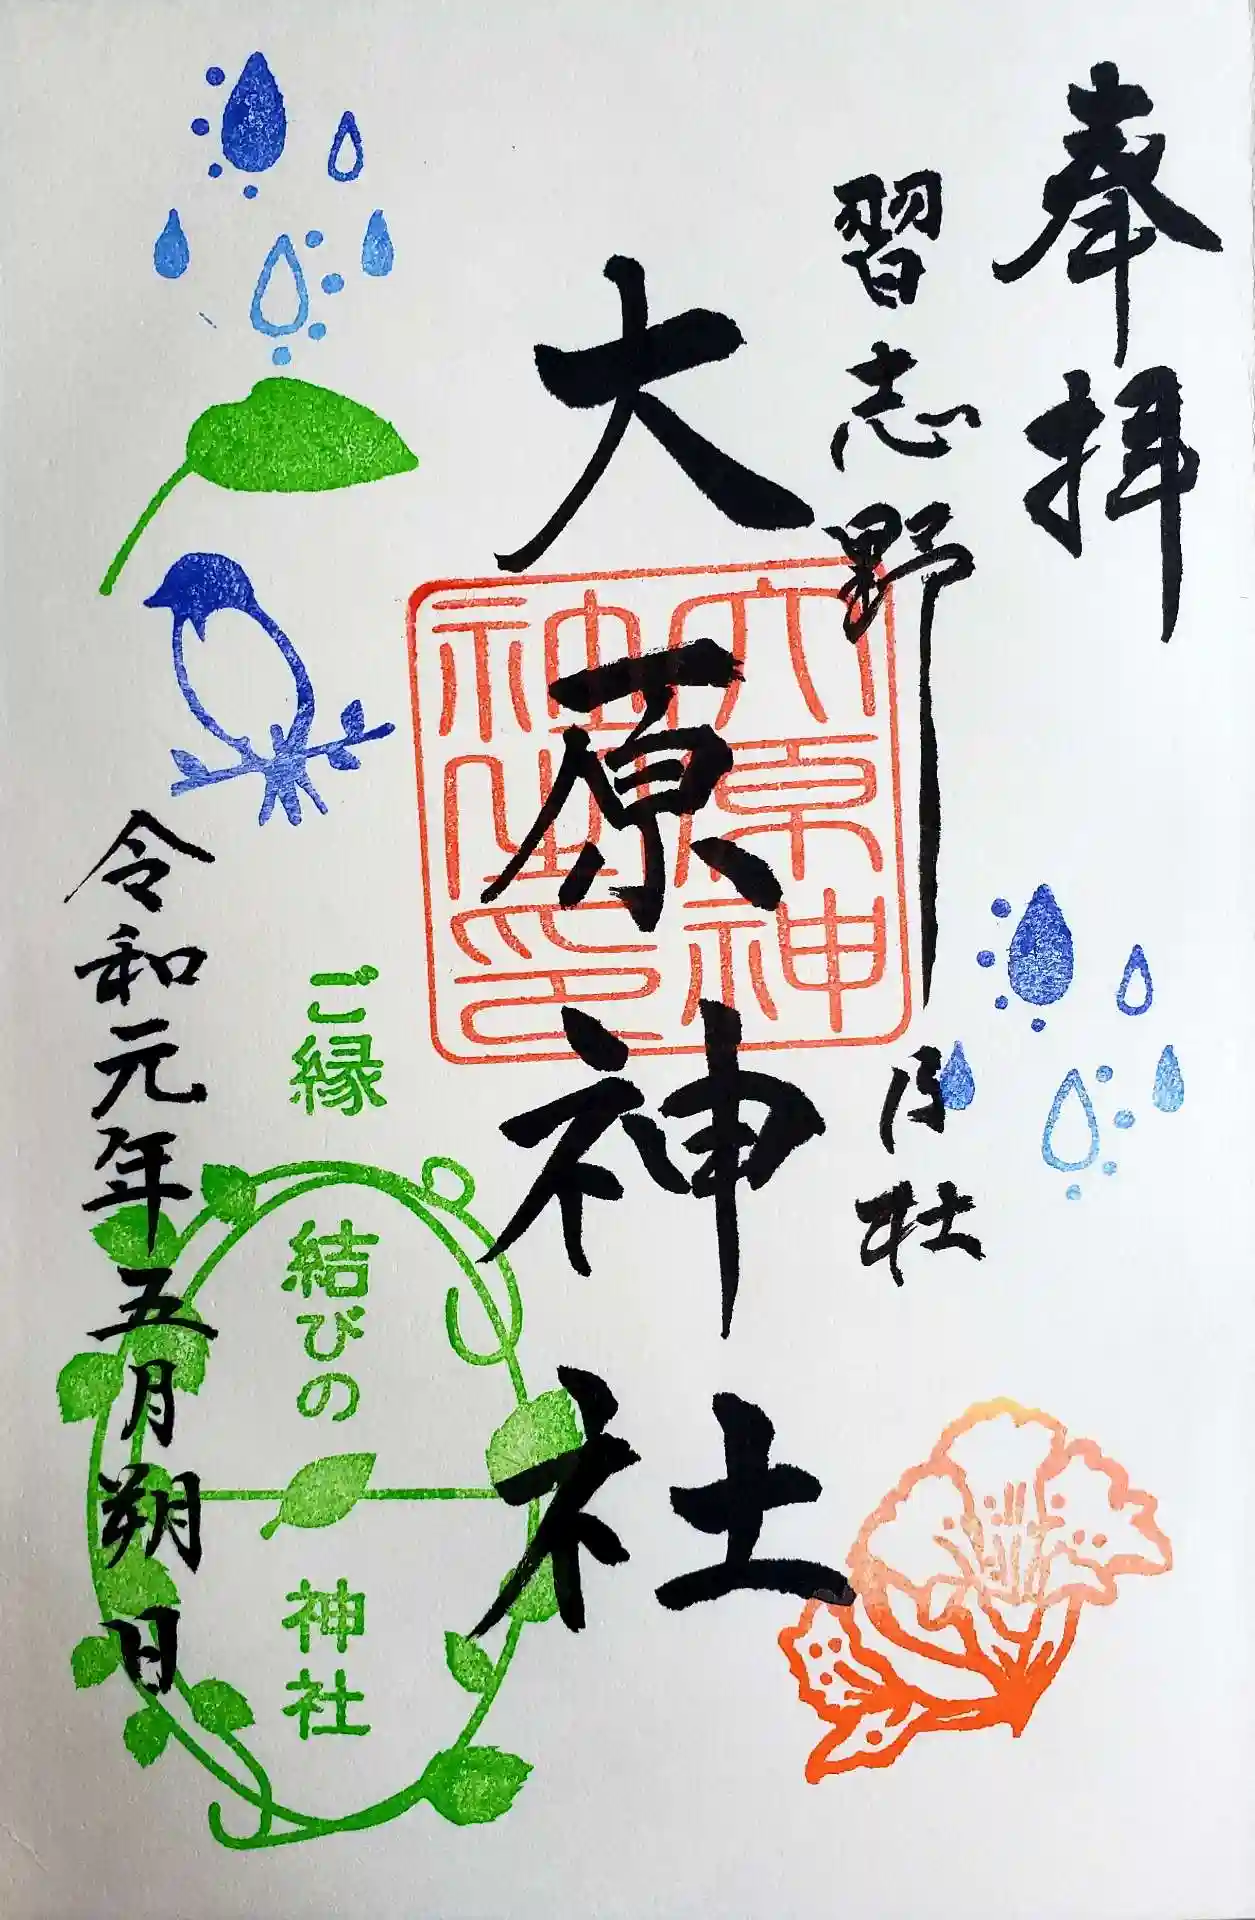 奉拝
習志野乃杜
大原神社
大原神
社之印
ご縁
結びの
神社
令和元年五月朔日